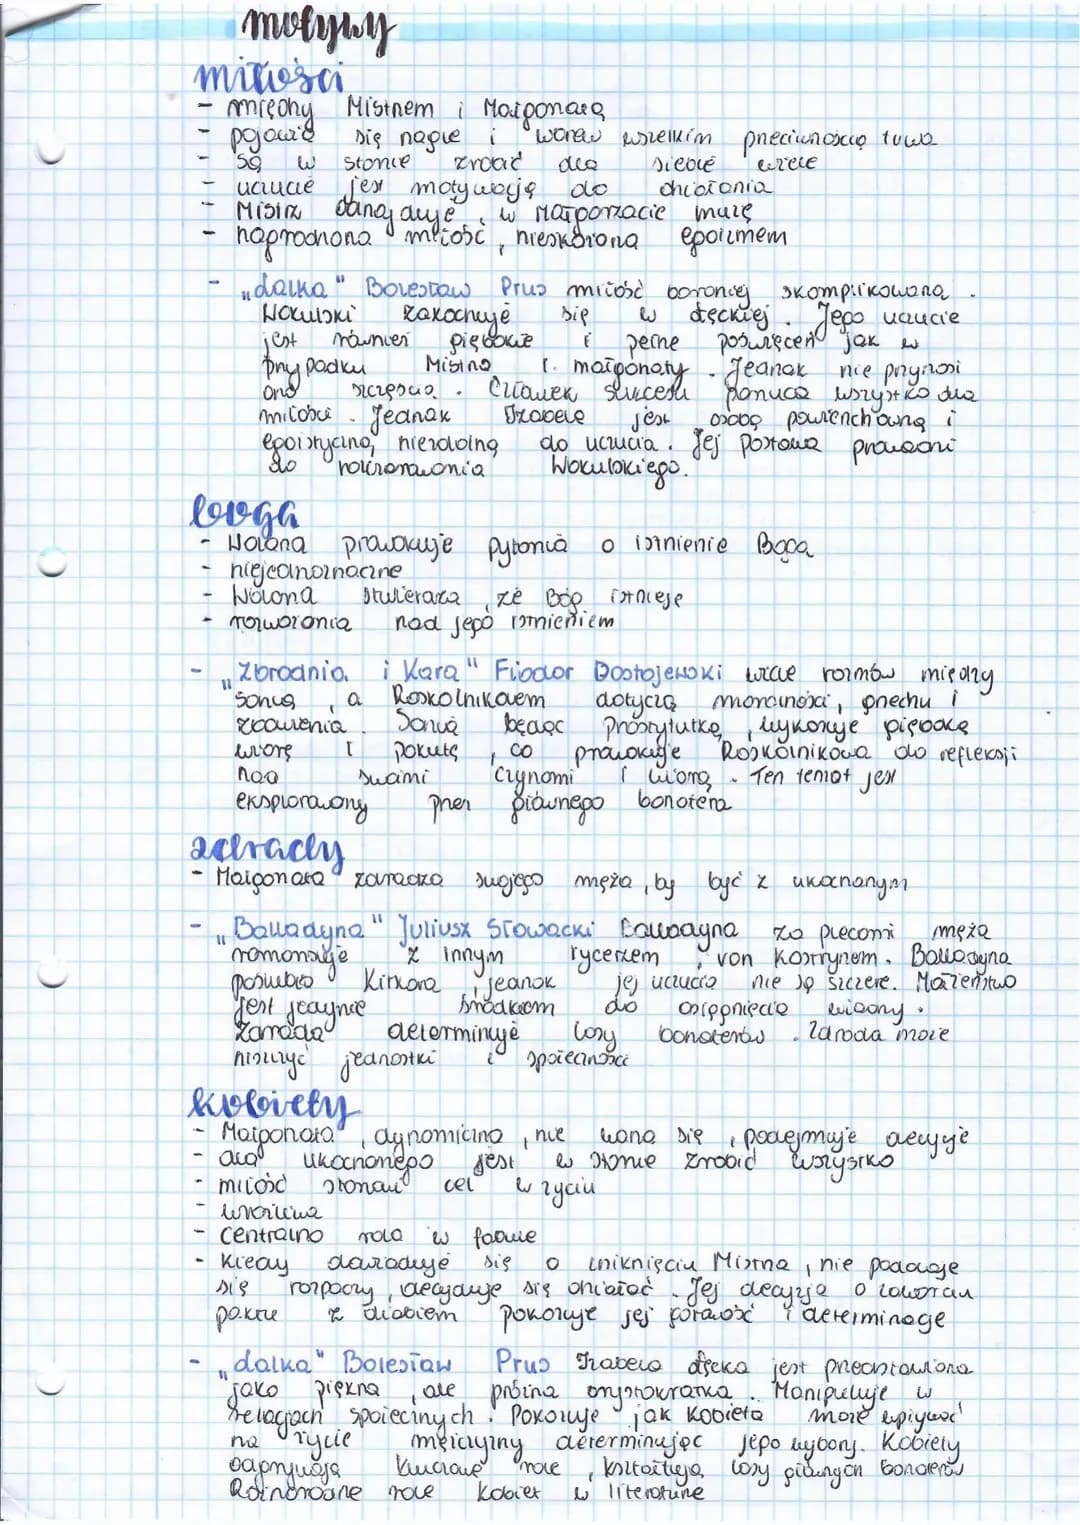 motywy
miłości
- między Mistrzem i Małgorzatą
- pojawia się nagle i wbrew wszelkim przeciwnością losu
- są w stanie zrobić dla siebie wiele
- uczucie jest motywacją do działania
- Mistrz odnajduje w Małgorzacie muzę
- nagrodzona miłość, nieskażona egoizmem
- „Lalka" Bolesław Prus miłość bardziej skomplikowana.
Wokulski zakochuje się w Łęckiej. Jego uczucie
jest również głębokie i pełne poświęceń jak w
przypadku Mistrza i małgorzaty. Jednak nie przynosi
ono szczęścia. Człowiek sukcesu porzuca wszystko dla
miłości. Jednak Izabela jest osobą powierzchowną i
egoistyczną, niezdolną do uczucia. Jej postawa prowadzi
do rozczarowania Wokulskiego.
boga
- Wolanda prowokuje pytania o istnienie Boga
- niejednoznaczne
- Wolond stwierdza, że Bóg istnieje
- rozważania nad jego istnieniem
- „Zbrodnia i Kara" Fiodor Dostojewski wiele rozmów między
Sonią, a Raskolnikowem dotyczą moralności, grzechu i
zbawienia. Sonia będąc prostytutką, wykazuje głęboką
wiarę i pokutę, co prowokuje Roskolnikowa do refleksji
nad swoimi czynami i wiarą. Ten temat jest
eksplorowany przez głównego bohatera
zdrady
- Małgorzata zdradza swojego męża, by być z ukochanym
- „Balladyna" Juliusz Słowacki Balladyna za plecami męża
romansuje z innym rycerzem, von Kostrynem. Balladyna
poślubia Kirkora, jednak jej uczucia nie są szczere. Małżeństwo
jest jedynie środkiem do osiągnięcia władzy.
Zdrada determinuje losy bohaterów. Zdrada może
niszczyć jednostki i społeczności
kobiety
- Małgorzata, dynamiczna, nie waha się, podejmuje decyzje
- dla ukochanego jest w stanie zrobić wszystko
- miłość stanowi cel w życiu
- wrażliwa
- centralna rola w fabule
- kiedy dowiaduje się o zniknięciu Mistrza, nie poddaje
się rozpaczy, decyduje się działać. Jej decyzja o zawarciu
paktu z diabłem pokazuje jej gotowość i determinację
- „Lalka" Bolesław Prus Izabela Łęcka jest przedstawiona
jako piękna, ale próżna arystokratka. Manipuluje w
relacjach społecznych. Pokazuje jak kobieta może wpływać
na życie mężczyzny determinując jego wybory. Kobiety
odgrywają kluczowe role, kształtują losy głównych bohaterów
Różnorodne role kobiet w literaturze